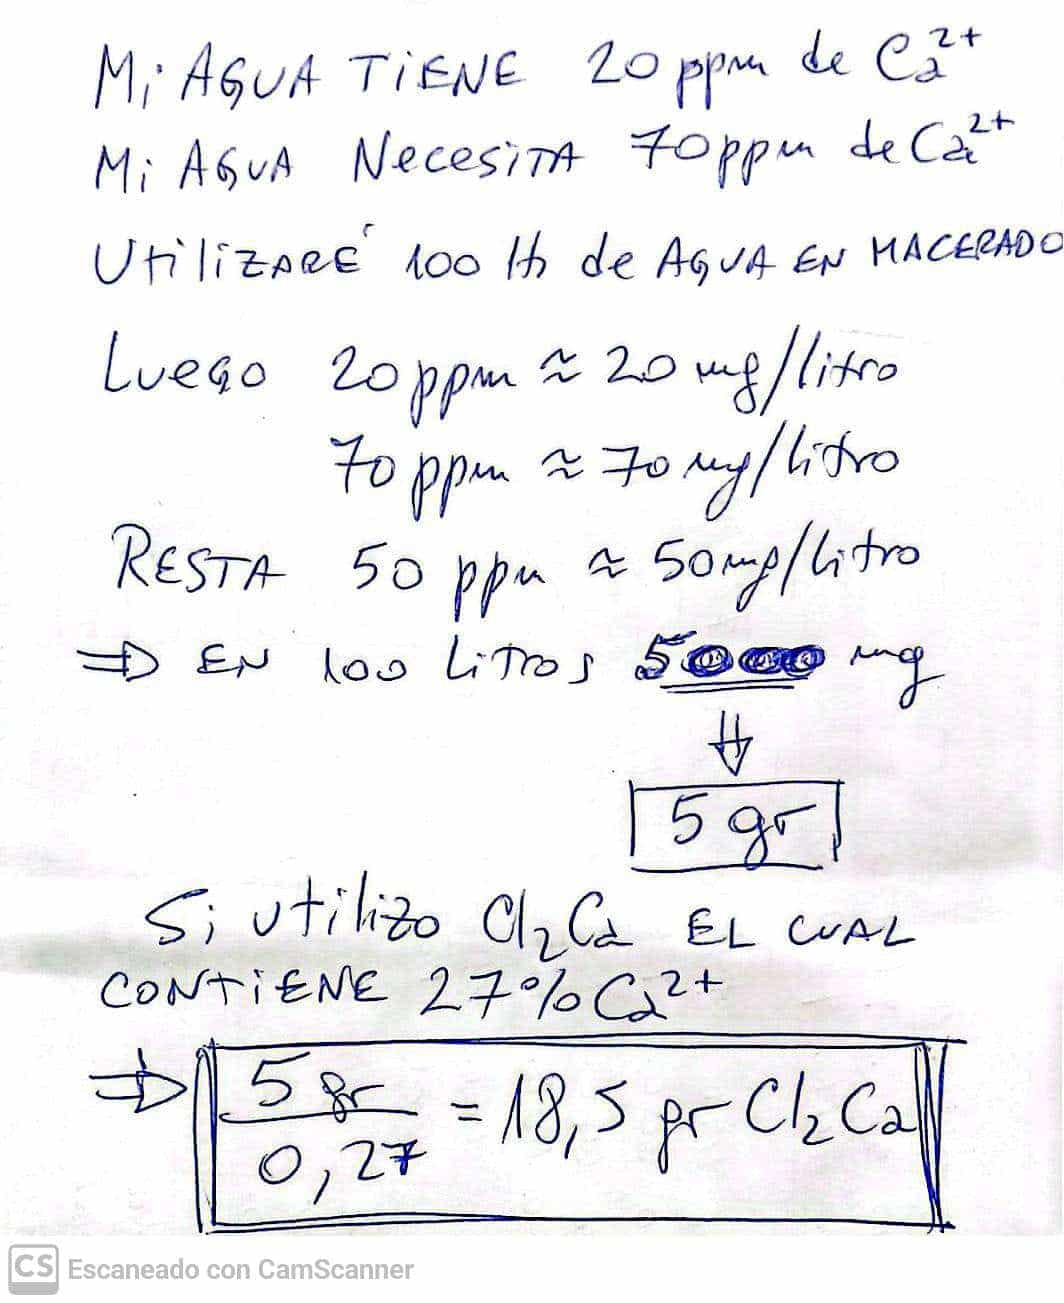 Mi AGUA TIENE 20 ppm de Ca²⁺
Mi AGUA NecesiTA 70 ppm de Ca²⁺
UtiliZARÉ 100 lts de AGUA EN MACERADO
LUEGO 20 ppm ≈ 20 mg/litro
70 ppm ≈ 70 mg/litro
RESTA 50 ppm ≈ 50 mg/litro
⇒ EN 100 LiTROS 5000 mg
⇓
5 gr
Si utilizo Cl₂Ca EL CUAL
CONTIENE 27% Ca²⁺
⇒ 5 gr / 0,27 = 18,5 gr Cl₂Ca
CS Escaneado con CamScanner